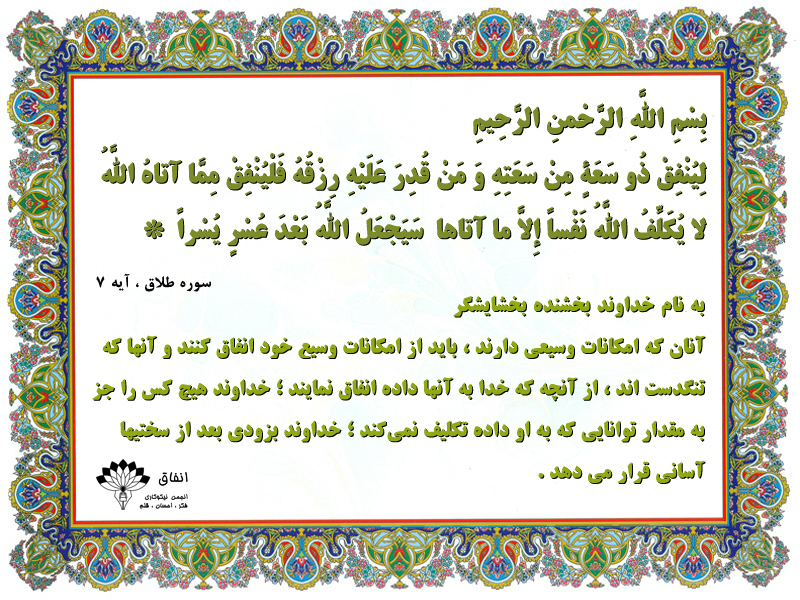 بِسْمِ اللَّهِ الرَّحْمنِ الرَّحِيمِ
لِيُنْفِقْ ذُو سَعَةٍ مِنْ سَعَتِهِ وَ مَنْ قُدِرَ عَلَيْهِ رِزْقُهُ فَلْيُنْفِقْ مِمَّا آتاهُ اللَّهُ
لا يُكَلِّفُ اللَّهُ نَفْساً إِلاَّ ما آتاها سَيَجْعَلُ اللَّهُ بَعْدَ عُسْرٍ يُسْراً *
سوره طلاق ، آیه ۷
به نام خداوند بخشنده بخشایشگر
آنان که امکانات وسیعی دارند ، باید از امکانات وسیع خود انفاق کنند و آنها که
تنگدست اند ، از آنچه که خدا به آنها داده انفاق نمایند ؛ خداوند هیچ کس را جز
به مقدار توانایی که به او داده تکلیف نمی‌کند ؛ خداوند بزودی بعد از سختیها
آسانی قرار می دهد .
انفاق
انجمن نیکوکاری
فکر ، احسان ، قلم